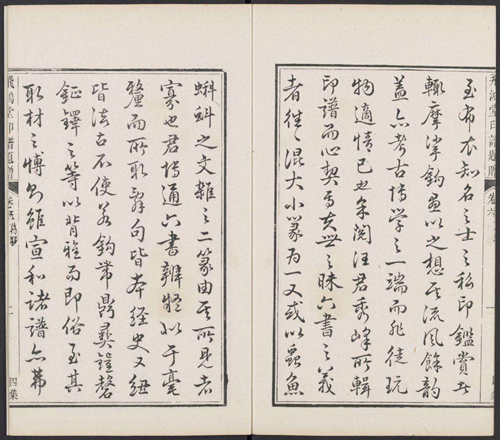 至布衣知名之士之私印鑑賞者
輒摩挲鈎畫以之想其流風餘韻
蓋亦考古博學之一端而非徒玩
物適情已也余閱汪君秀峰所輯
印譜而心契焉夫世之昧六書之義
者往往混大小篆為一又或以蟲魚
蝌蚪之文雜之二篆由其所見者
寡也君博通六書辨疑似于毫
釐而所取辭句皆本經史又紐
皆法古不使若鈎常鼎彝鐘磬
鉦鐸之等以背雅而即俗至其
取材之博則雖宣和諸譜亦
飛鴻堂印譜
二
四集